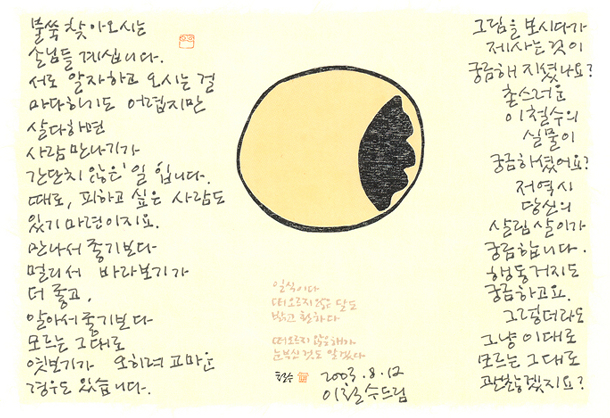 불쑥 찾아오시는
손님들 계십니다.
서로 알자하고 오시는 걸
마다하기도 어렵지만
살다하면
사람 만나기가
간단치 않은 일 입니다.
때로, 피하고 싶은 사람도
있기 마련이지요.
만나서 좋기보다
멀리서 바라보기가
더 좋고,
알아서 좋기보다
모르는 그대로
엿보기가 오히려 고마운
경우도 있습니다.
일식이다
떠오르지 않은 달도
밝고 환하다
떠오르지 않은 해가
눈부신 것도 알겠다
철수 2003. 8. 12
이철수드림
그림을 보시다가
제 사는 것이
궁금해 지셨나요?
촌스러운
이철수의
실물이
궁금하셨어요?
저 역시
당신의
살림살이가
궁금합니다.
행동거지도
궁금하고요.
그렇더라도
그냥 이대로
모르는 그대로
괜찮겠지요?